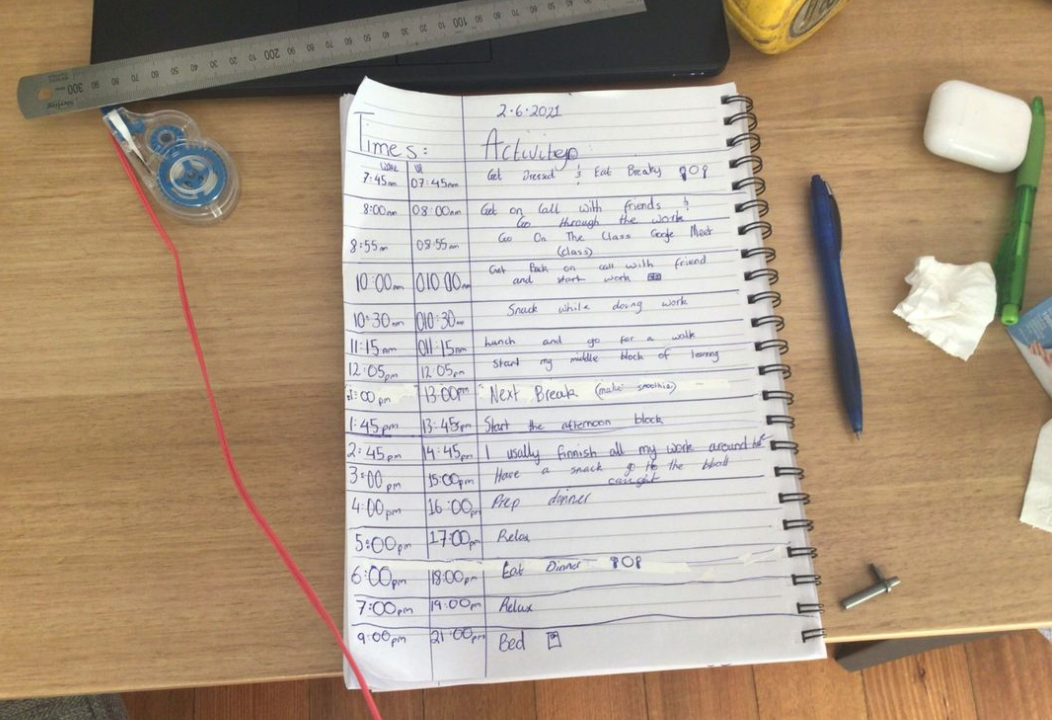 2.6.2021
Times: Activitep
7:45am 07:45am Get Dressed & Eat Breaky
8:00am 08:00am Get on Call with friends &
Go through the work
8:55am 08:55am Go On The Class Google Meet
(class)
10:00am 010.00am Get Back on call with friend
and start work
10:30am 010:30am Snack while doing work
11:15am 011:15am Lunch and go for a walk
12:05pm 12:05pm Start my middle block of learning
1:00pm 13:00pm Next Break (make smoothie)
1:45pm 13:45pm Start the afternoon block
2:45pm 14:45pm I usally finnish all my work around
3:00pm 15:00pm Have a snack go to the bball
caught
4:00pm 16:00pm Prep dinner
5:00pm 17:00pm Relax
6:00pm 18:00pm Eat Dinner
7:00pm 19:00pm Relax
9:00pm 21:00pm Bed
300 80 70 60 40 30 20 200 80 70 60 40 30 20 100